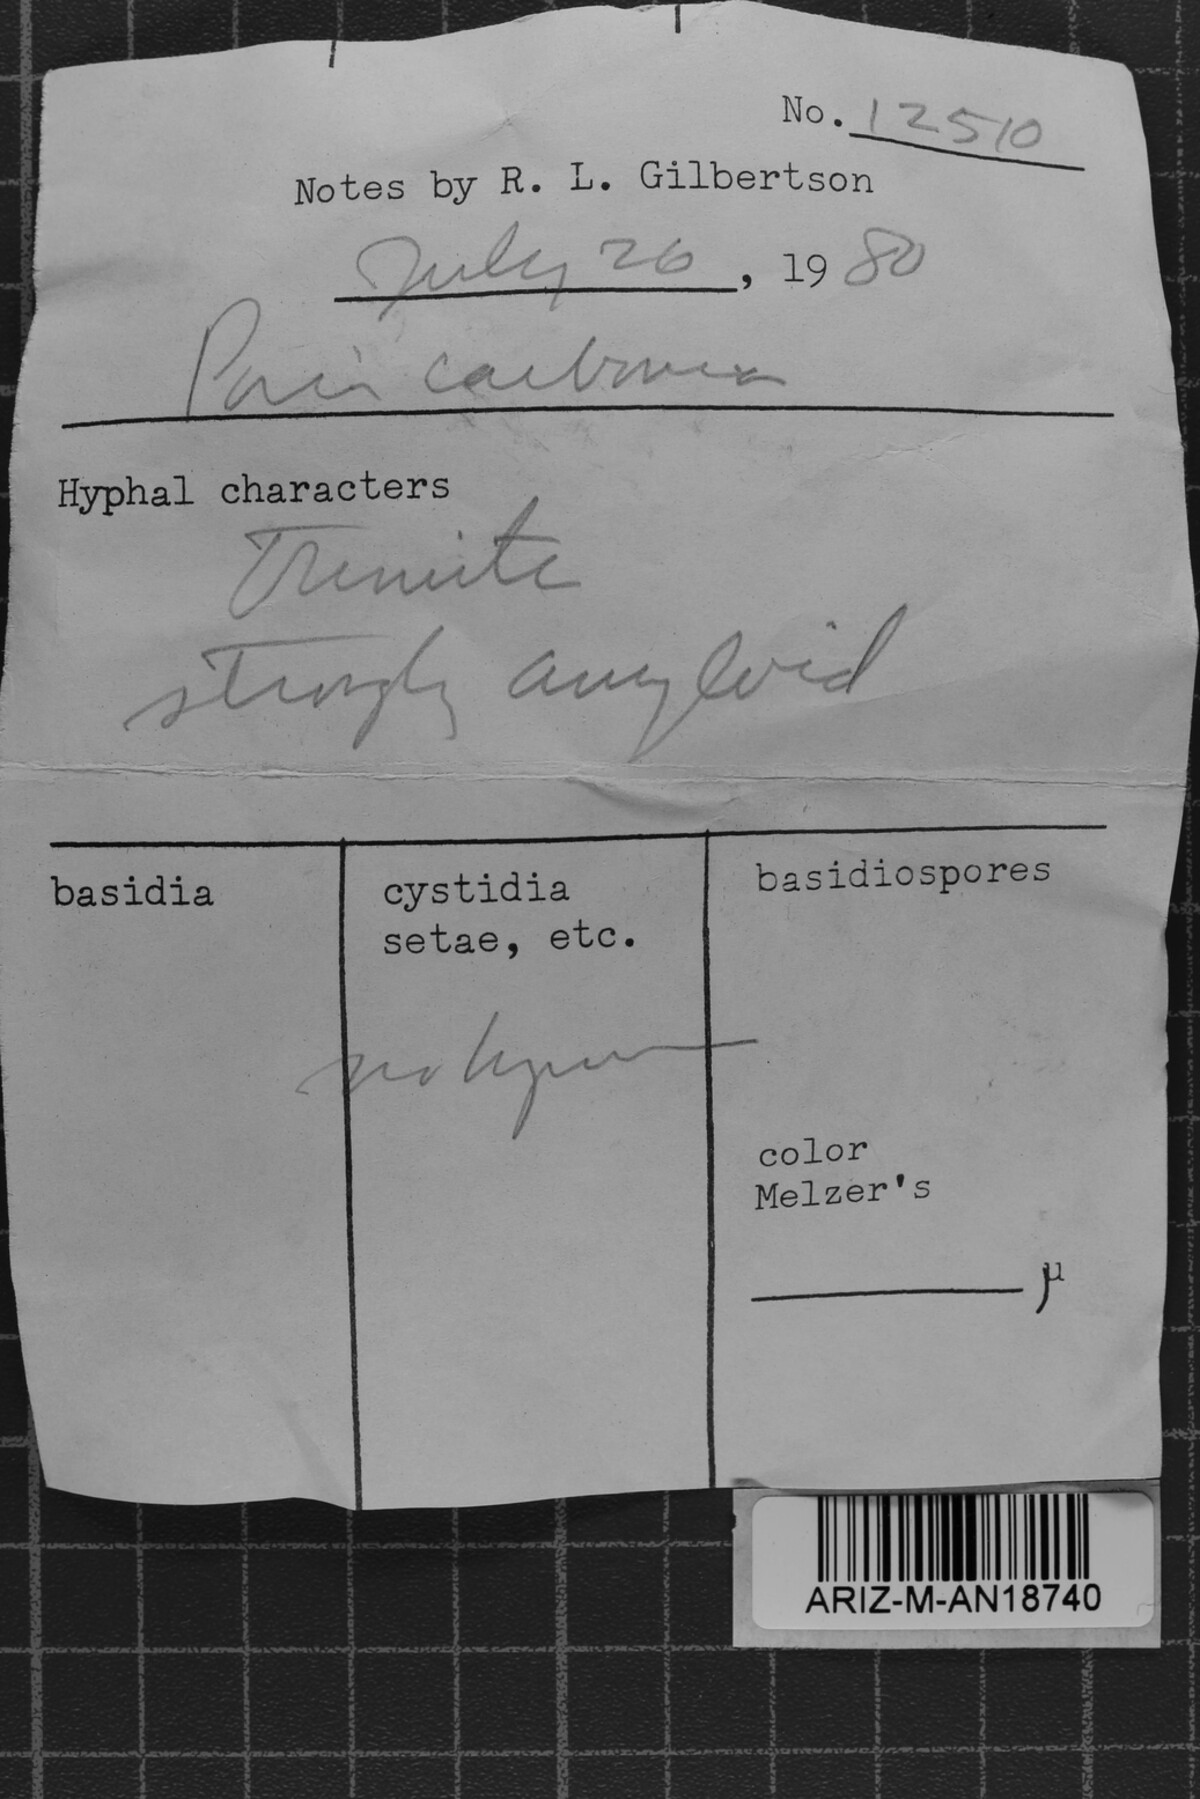 No. 12510
Notes by R. L. Gilbertson
July 26, 1980
Poria carbonica
Hyphal characters
Trimitic
strongly amyloid
basidia
cystidia
setae, etc.
basidiospores
no hymen
color
Melzer's
µ
ARIZ-M-AN18740